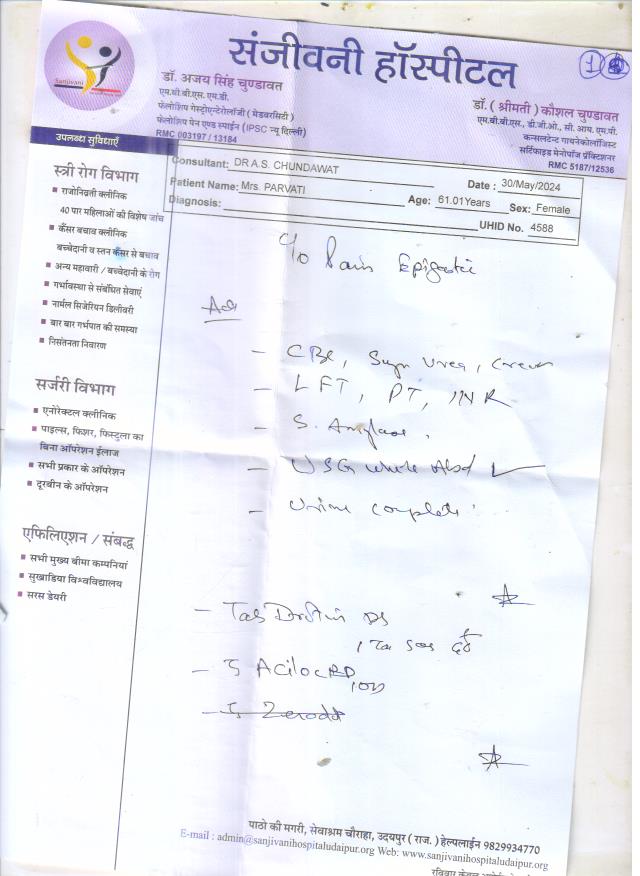 1
Sanjivani
संजीवनी हॉस्पीटल
डॉ. अजय सिंह चुण्डावत
एम.बी.बी.एस. एम.डी.
फेलोशिप गेस्ट्रोएन्टेरोलॉजी ( मेडवरसिटी )
फेलोशिप पेन एण्ड स्पाईन (IPSC न्यू दिल्ली)
RMC 003197 / 13184
डॉ. ( श्रीमती ) कौशल चुण्डावत
एम.बी.बी.एस., डी.जी.ओ., सी. आय. एम.पी.
कन्सलटेन्ट गायनेकोलॉजिस्ट
सर्टिफाइड मेनोपॉज प्रॅक्टिशनर
RMC 5187/12536
उपलब्ध सुविधाएँ
Consultant: DR A.S. CHUNDAWAT Date : 30/May/2024
Patient Name: Mrs. PARVATI Age: 61.01Years Sex: Female
Diagnosis: UHID No. 4588
स्त्री रोग विभाग
राजोनिव्रती क्लीनिक
40 पार महिलाओं की विशेष जांच
कैंसर बचाव क्लीनिक
बच्चेदानी व स्तन कैंसर से बचाव
अन्य महावारी / बच्चेदानी के रोग
गर्भावस्था से संबंधित सेवाएं
नार्मल सिजेरियन डिलीवरी
बार बार गर्भपात की समस्या
निसंतनता निवारण
सर्जरी विभाग
एनोरेक्टल क्लीनिक
पाइल्स, फिशर, फिस्टुला का
बिना ऑपरेशन ईलाज
सभी प्रकार के ऑपरेशन
दूरबीन के ऑपरेशन
एफिलिएशन / संबद्ध
सभी मुख्य बीमा कम्पनियां
सुखाडिया विश्वविद्यालय
सरस डेयरी
C/o Pain Epigastric
Adv
- CBC, Sugar Urea, Creat
- LFT, PT, INR
- S. Amylase,
- USG whole Abd ✓
- Urine complete
- Tab Drotin DS
1 Tab SOS दर्द
- T Aciloc RD
1 OD
- T Zerodol
पाठो की मगरी, सेवाश्रम चौराहा, उदयपुर ( राज. ) हेल्पलाईन 9829934770
E-mail : admin@sanjivanihospitaludaipur.org Web: www.sanjivanihospitaludaipur.org